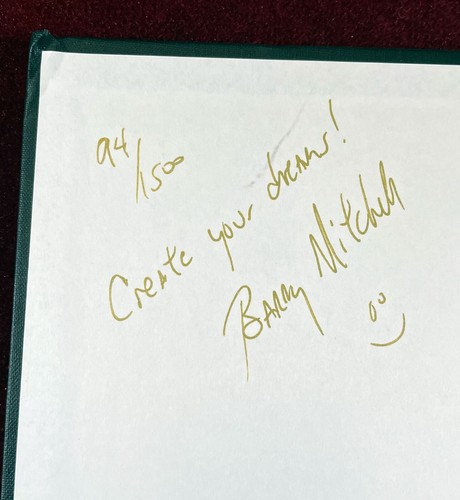 94/1500
Create your dreams!
Barry Mitchell